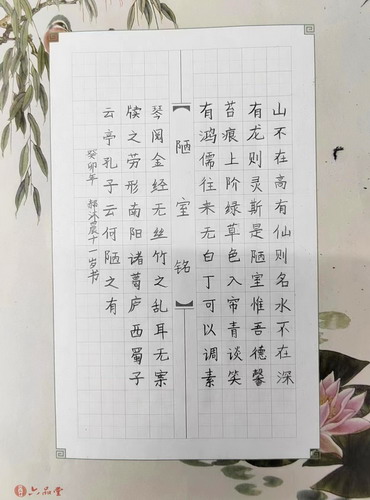 山不在高有仙则名水不在深
有龙则灵斯是陋室惟吾德馨
苔痕上阶绿草色入帘青谈笑
有鸿儒往来无白丁可以调素
【陋室铭】
琴阅金经无丝竹之乱耳无案
牍之劳形南阳诸葛庐西蜀子
云亭孔子云何陋之有
癸卯年 沐晨十一岁书
六品堂